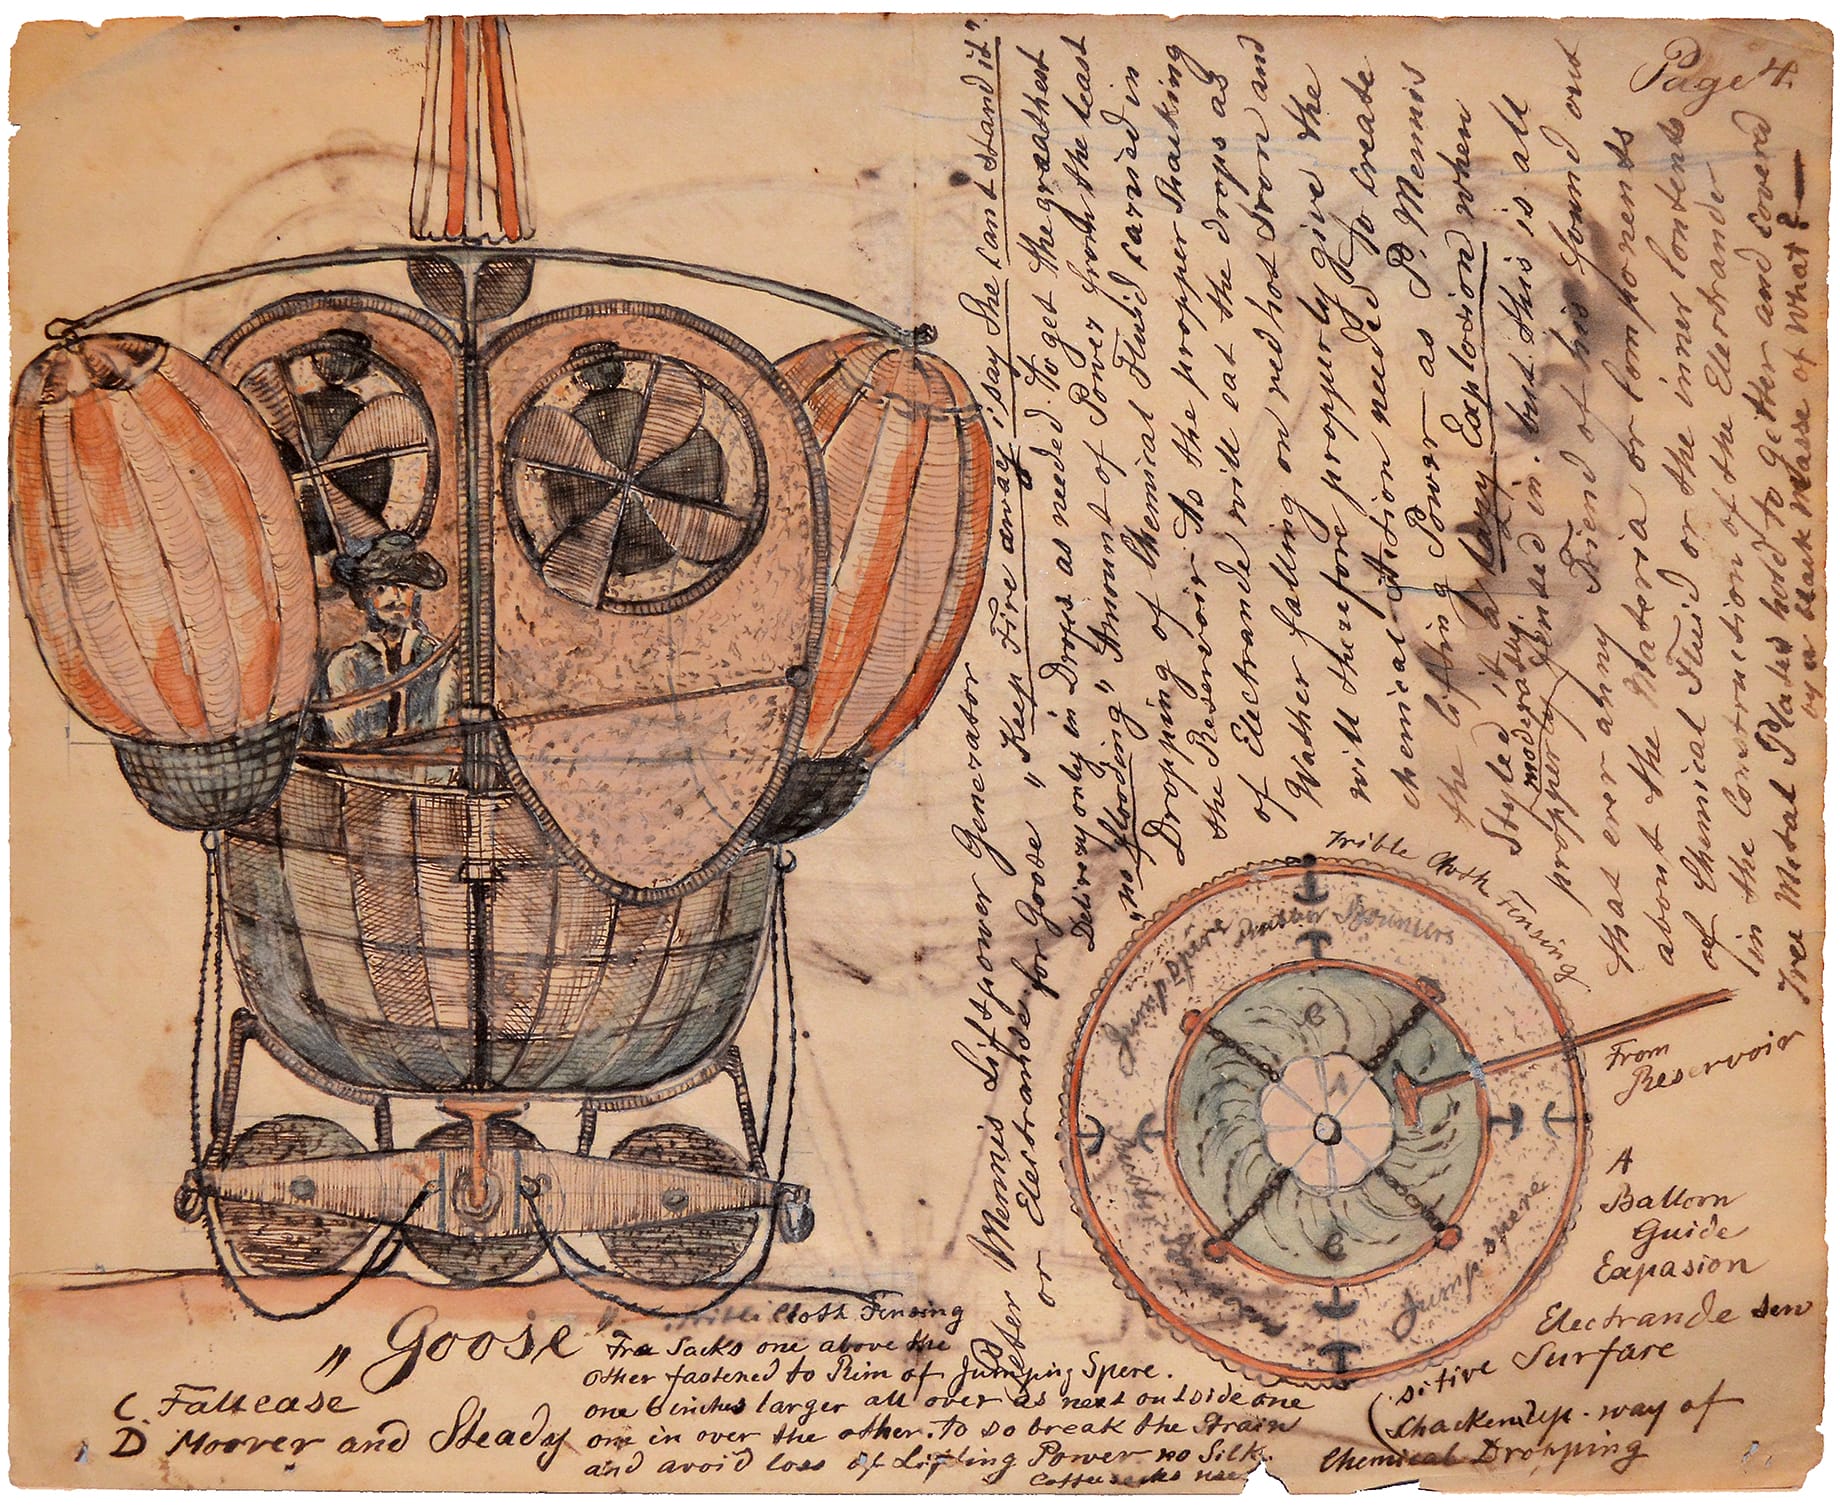 Page 4.
Peter Mennis Liftpower Generator "Keep Fire away", i say She cant stand it".
or Electrande for Goose
Delivery only in Drops as needed. To get the greathest
"no flooding" Amount of Power from the least
Dropping of Chemical Fluid carried in
the Reservoir to the propper Shacking
of Electrande will eat the drops as
Wather falling on red hot Iron and
will therefore propperly give the
chemical Action needed to create
the lifting Power as P. Mennis
Styled it. a lazy Explosion when
moderately.
properly fensed in. but this is all
that ever anny Friend of his found out
about the Materia or Componends
of Chemical Fluid or the inner Contents
in the Construction of the Electrande
Tree Metal Plates held to gether and coverd
by a black Masse of What? —
Trible Cloth Fensing
Jump Spere Rubber Bouncers
Jump Spere
C
C
From
Reservoir
A
Balloon
Guide
Expasion
Electrande sen
sitive Surfare
(Shackendep. way of
Chemical Dropping
"Goose"
C. Fallcease
D Moover and Steady
Trible Cloth Fensing
Tree Sacks one above the
other fastened to Rim of Jumping Spere.
one 6 inches larger all over as next outside one
one in over the other. to so break the Strain
and avoid loss of Lifting Power no Silk.